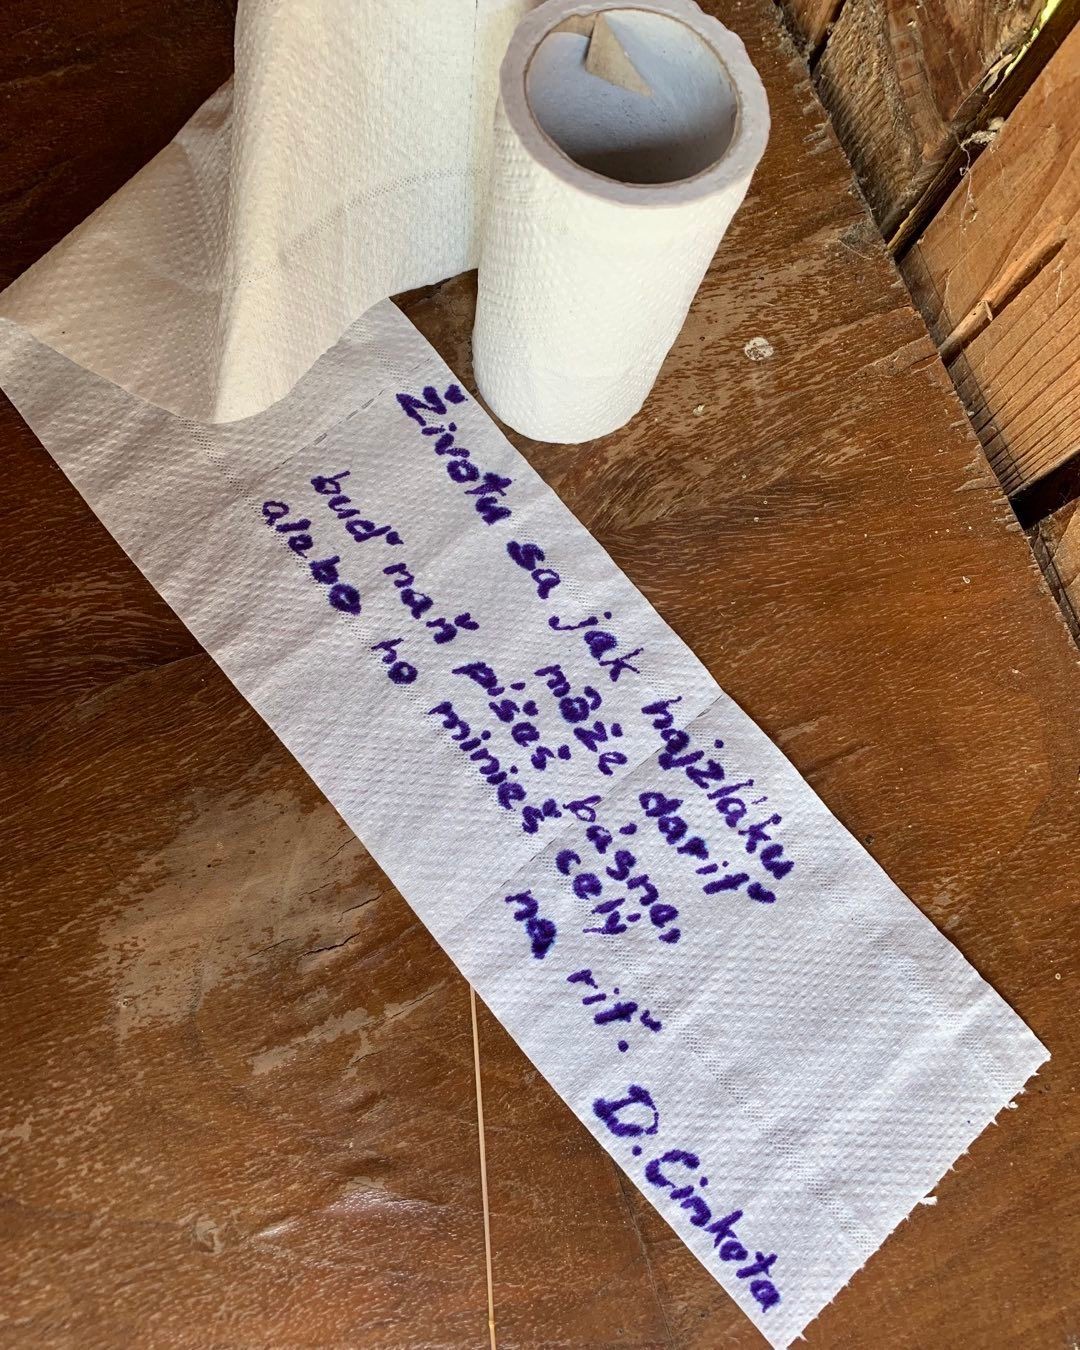 Životu sa jak hajzláku
môže dariť
buď naň píšeš básne,
alebo ho minieš celý
na riť.
D. Cimkota